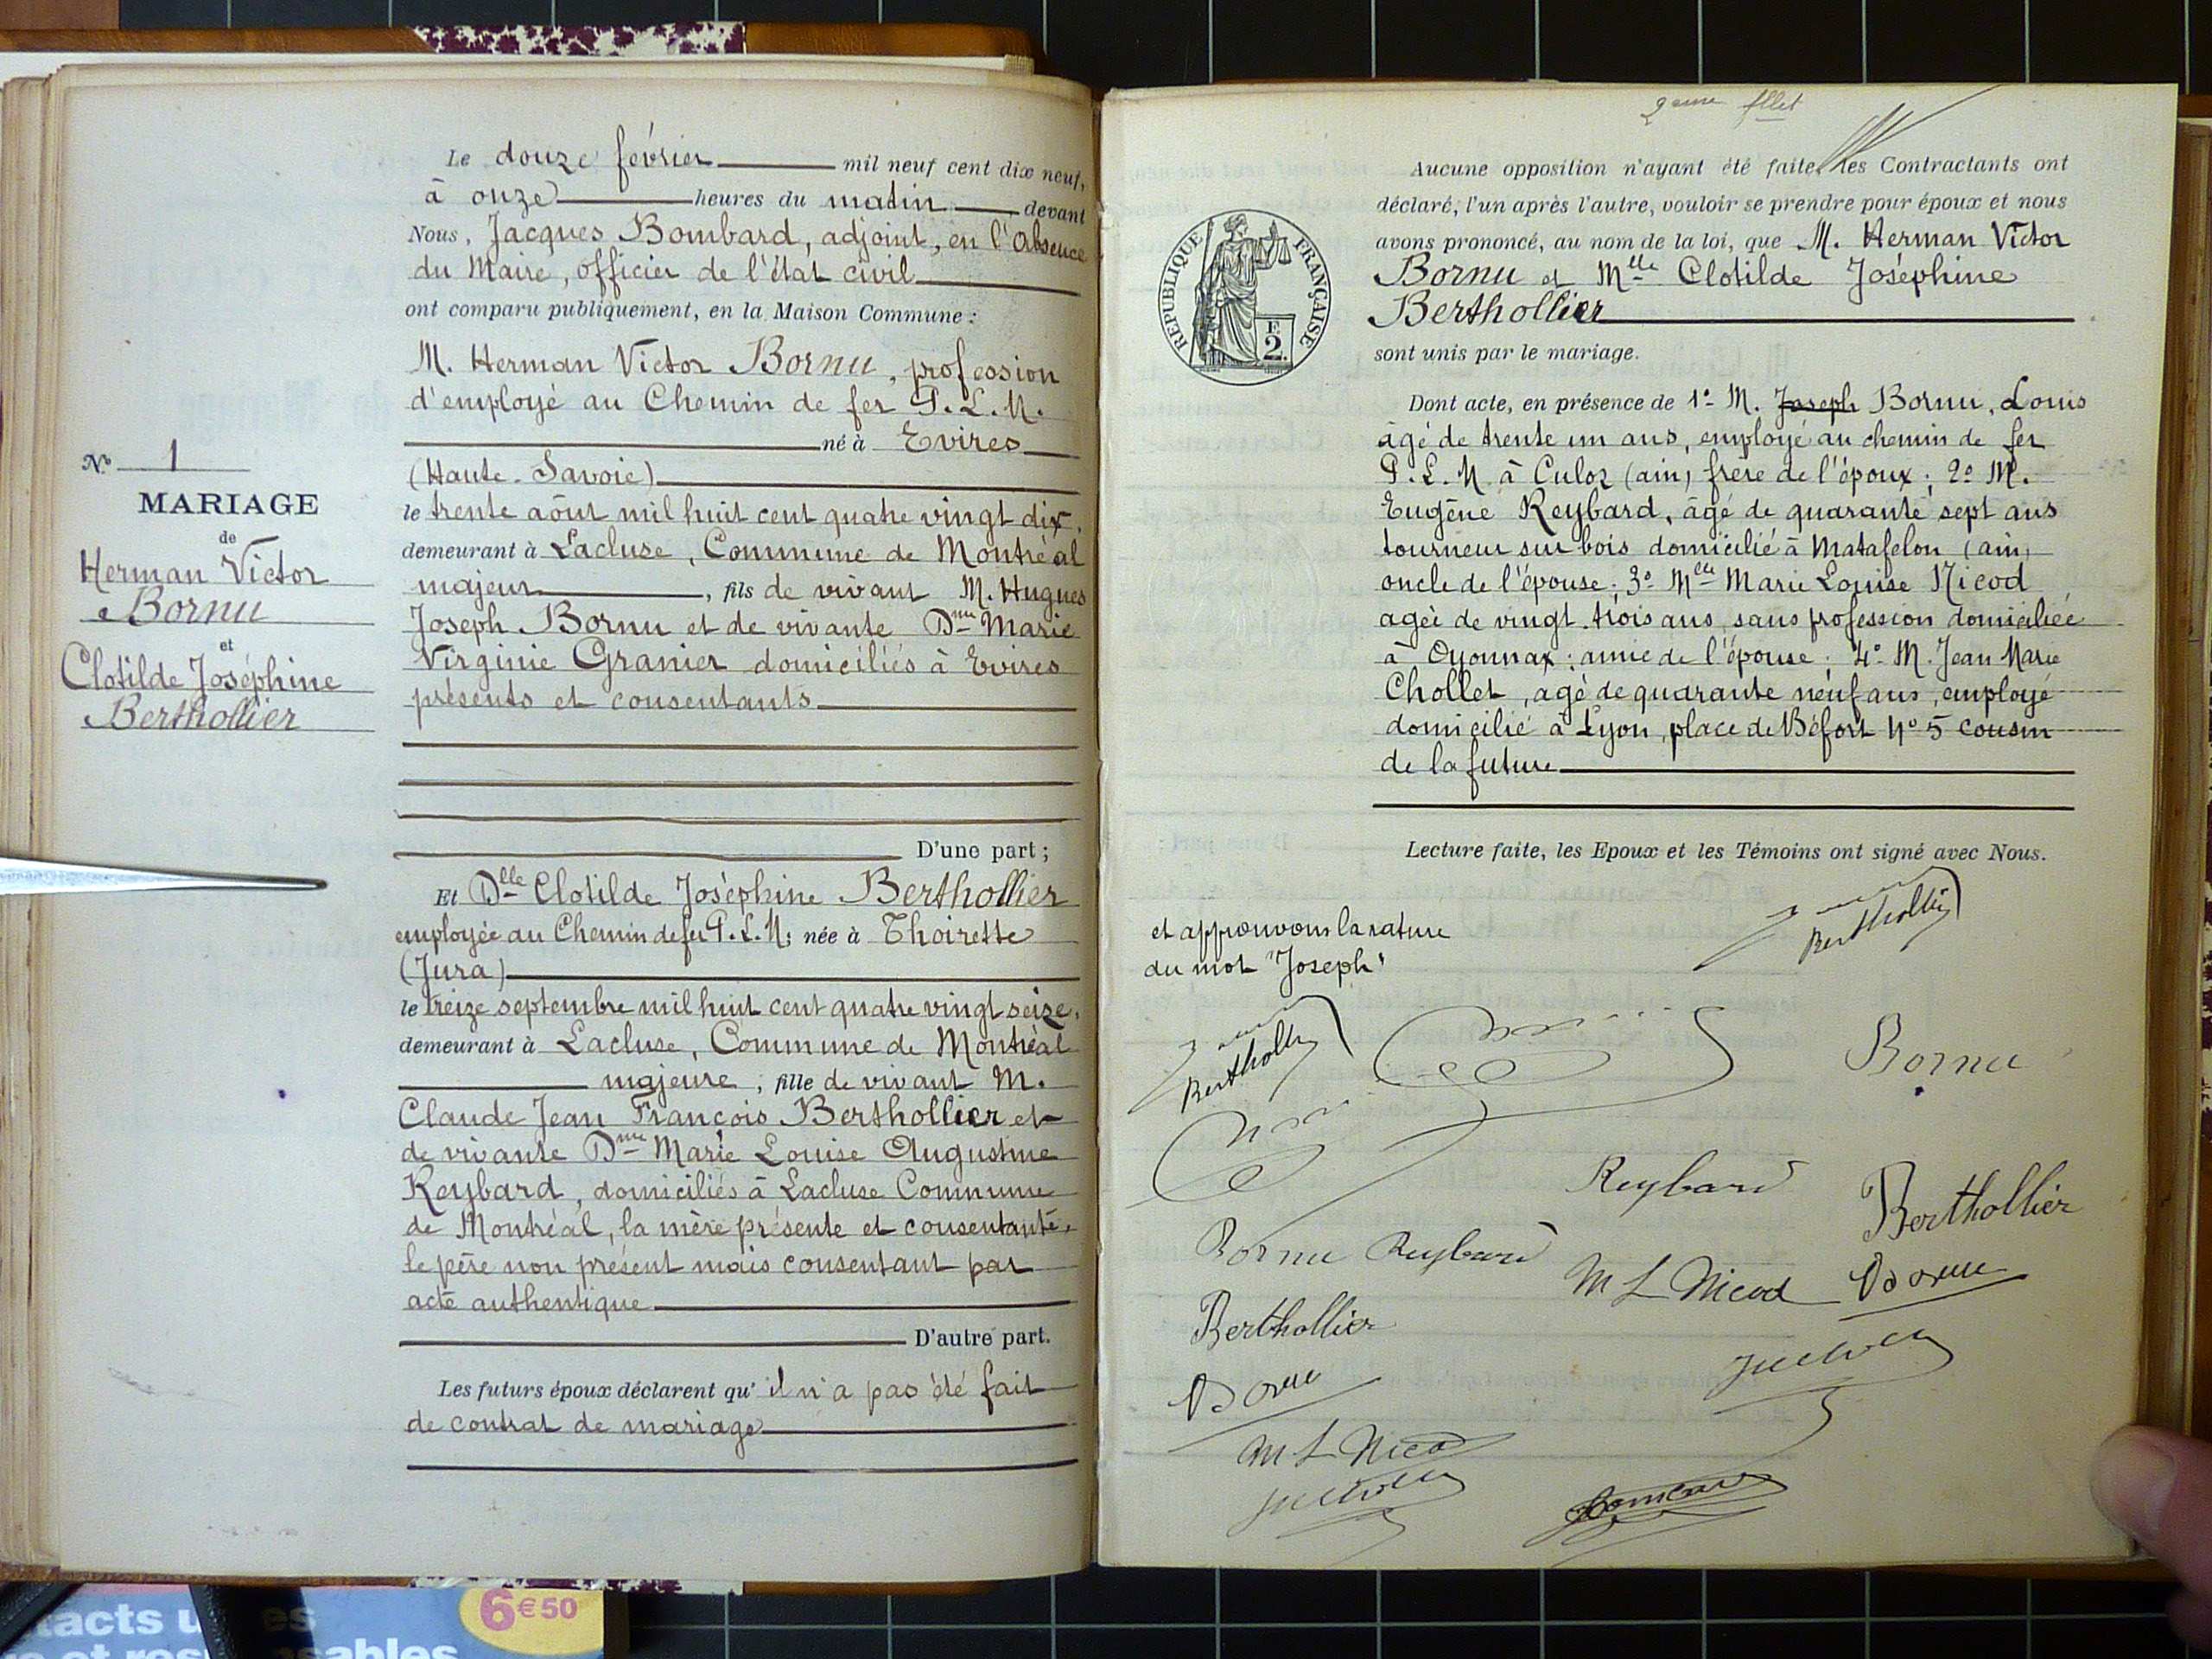 Le douze février mil neuf cent dix neuf,
à onze heures du matin devant
Nous, Jacques Bombard, adjoint, en l'absence
du Maire, officier de l'état civil
ont comparu publiquement, en la Maison Commune :
M. Herman Victor Bornu, profession
d'employé au Chemin de fer P.L.M.
né à Evires
(Haute-Savoie)
le trente août mil huit cent quatre vingt dix,
demeurant à Lacluse, Commune de Montréal
majeur, fils de vivant M. Hugues
Joseph Bornu et de vivante Dme Marie
Virginie Granier domiciliés à Evires
présents et consentants
D'une part ;
Et Dlle Clotilde Joséphine Berthollier
employée au Chemin de fer P.L.M; née à Thoirette
(Jura)
le treize septembre mil huit cent quatre vingt seize,
demeurant à Lacluse, Commune de Montréal
majeure, fille de vivant M.
Claude Jean François Berthollier et
de vivante Dme Marie Louise Augustine
Reybard, domiciliés à Lacluse Commune
de Montréal, la mère présente et consentante,
le père non présent mais consentant par
acte authentique
D'autre part.
Les futurs époux déclarent qu'il n'a pas été fait
de contrat de mariage
No 1
MARIAGE
de
Herman Victor
Bornu
et
Clotilde Joséphine
Berthollier
Aucune opposition n'ayant été faite, les Contractants ont
déclaré, l'un après l'autre, vouloir se prendre pour époux et nous
avons prononcé, au nom de la loi, que M. Herman Victor
Bornu et Mlle Clotilde Joséphine
Berthollier
sont unis par le mariage.
Dont acte, en présence de 1º M. Joseph Bornu, Louis
âgé de trente un ans, employé au chemin de fer
P.L.M à Culoz (ain) frère de l'époux; 2º M.
Eugène Reybard, âgé de quarante sept ans
tourneur sur bois domicilié à Matafelon (ain)
oncle de l'épouse; 3º Mlle Marie Louise Nicod
agée de vingt trois ans, sans profession domiciliée
à Oyonnax; amie de l'épouse; 4º M. Jean Marie
Chollet, agé de quarante neuf ans, employé
domicilié à Lyon, place de Béfort Nº 5 cousin
de la future
Lecture faite, les Epoux et les Témoins ont signé avec Nous.
REPUBLIQUE FRANÇAISE
F.
2.
et approuvons la rature
du mot "Joseph"
Berthollier
Berthollier
Bornu
Reybard
Berthollier
Bornu Reybard
M L Nicod Bornu
Berthollier
Bornu
M L Nicod
Bombard
6€50